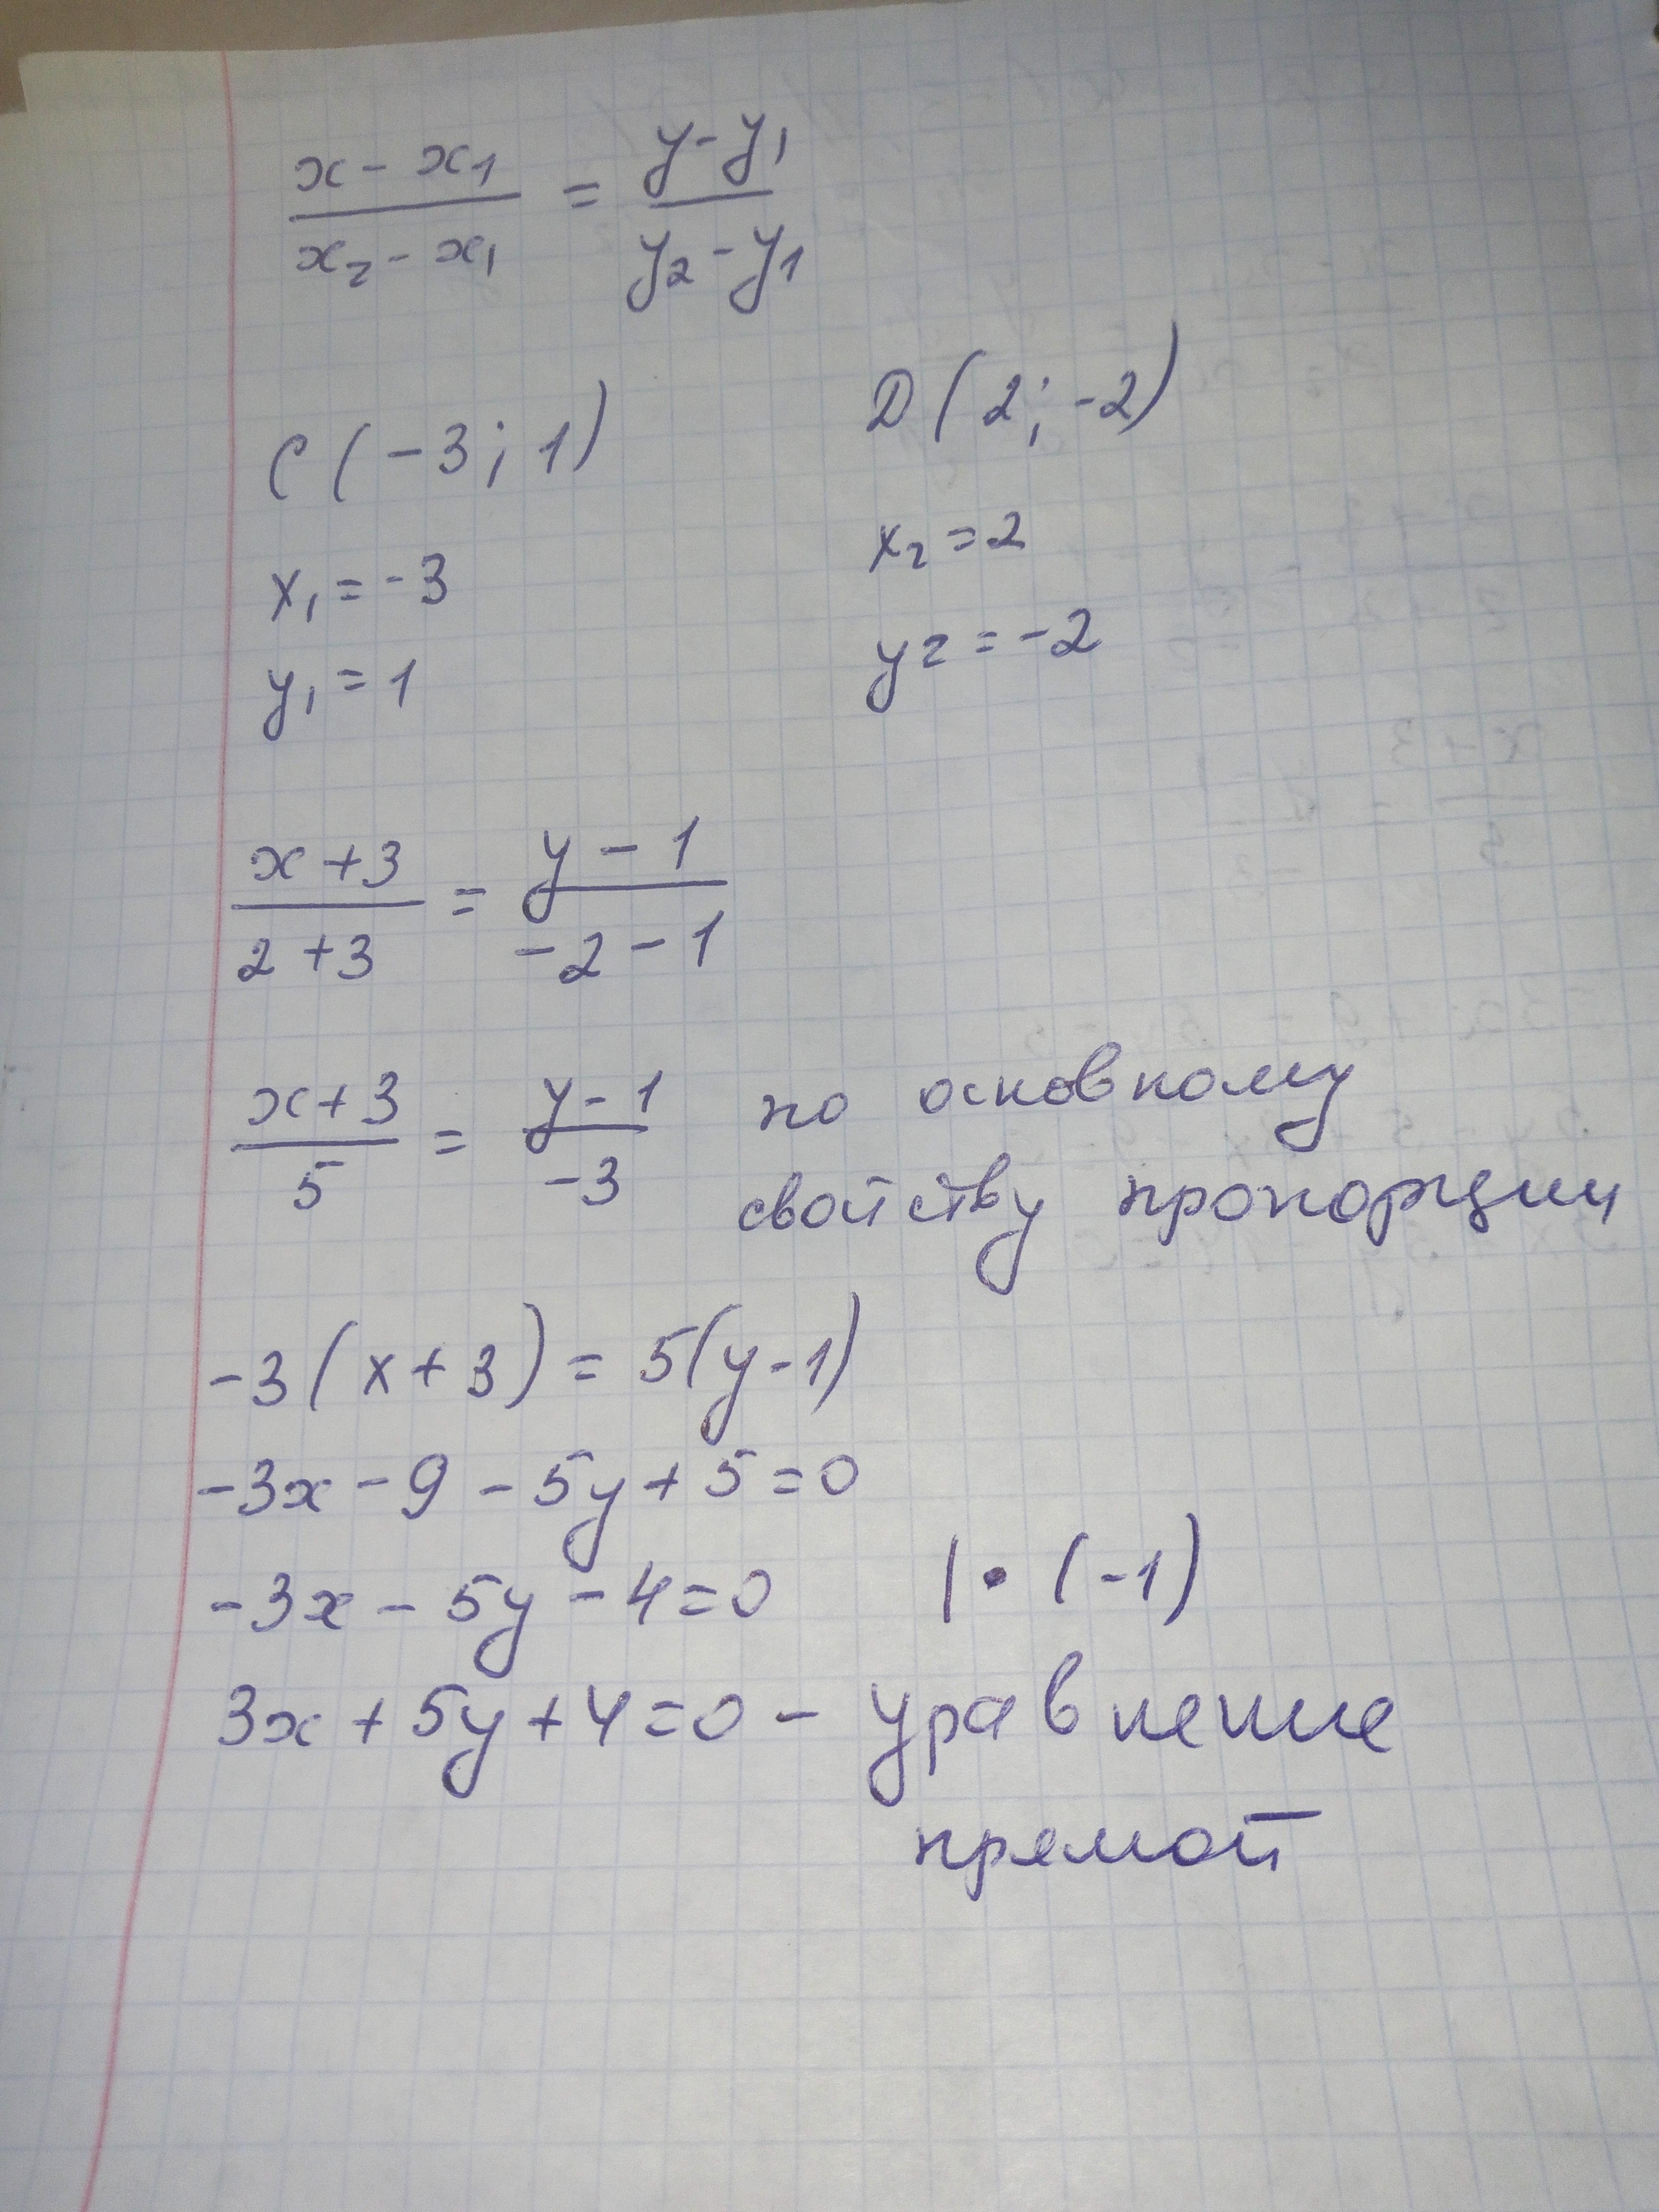 (x - x₁)/(x₂ - x₁) = (y - y₁)/(y₂ - y₁)
C(-3; 1) D(2; -2)
x₁ = -3 x₂ = 2
y₁ = 1 y₂ = -2
(x + 3)/(2 + 3) = (y - 1)/(-2 - 1)
(x + 3)/5 = (y - 1)/-3 по основному
свойству пропорции
-3(x + 3) = 5(y - 1)
-3x - 9 - 5y + 5 = 0
-3x - 5y - 4 = 0 | · (-1)
3x + 5y + 4 = 0 - уравнение
прямой